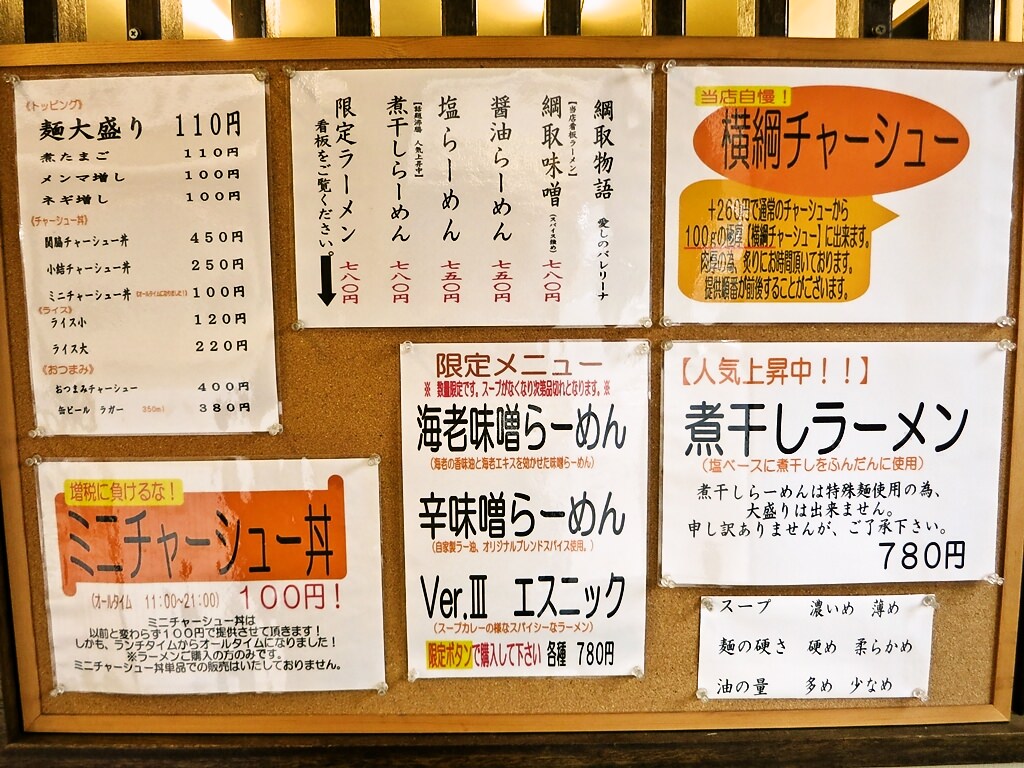 《トッピング》
麺大盛り 110円
煮たまご 110円
メンマ増し 100円
ネギ増し 100円
《チャーシュー丼》
関脇チャーシュー丼 450円
小結チャーシュー丼 250円
ミニチャーシュー丼 (オールタイムになりました!) 100円
《ライス》
ライス小 120円
ライス大 220円
《おつまみ》
おつまみチャーシュー 400円
缶ビール ラガー 350ml 380円
綱取物語 愛しのバレリーナ
【当店看板ラーメン】
綱取味噌 (スパイス強め) 七八〇円
醤油らーめん 七五〇円
塩らーめん 七五〇円
【話題沸騰 人気上昇中】
煮干しらーめん 七八〇円
限定ラーメン 七八〇円
看板をご覧ください。
当店自慢!
横綱チャーシュー
+260円で通常のチャーシューから
100gの極厚【横綱チャーシュー】に出来ます。
肉厚の為、炙りにお時間頂いております。
提供順番が前後することがございます。
増税に負けるな!
ミニチャーシュー丼
(オールタイム 11:00~21:00) 100円!
ミニチャーシュー丼は
以前と変わらず100円で提供させて頂きます!
しかも、ランチタイムからオールタイムになりました!
※ラーメンご購入の方のみです。
ミニチャーシュー丼単品での販売はいたしておりません。
限定メニュー
※ 数量限定です。スープがなくなり次第品切れとなります。※
海老味噌らーめん
(海老の香味油と海老エキスを効かせた味噌らーめん)
辛味噌らーめん
(自家製ラー油、オリジナルブレンドスパイス使用。)
Ver.Ⅲ エスニック
(スープカレーの様なスパイシーなラーメン)
限定ボタンで購入して下さい 各種 780円
【人気上昇中!!】
煮干しラーメン
(塩ベースに煮干しをふんだんに使用)
煮干しらーめんは特殊麺使用の為、
大盛りは出来ません。
申し訳ありませんが、ご了承下さい。
780円
スープ 濃いめ 薄め
麺の硬さ 硬め 柔らかめ
油の量 多め 少なめ